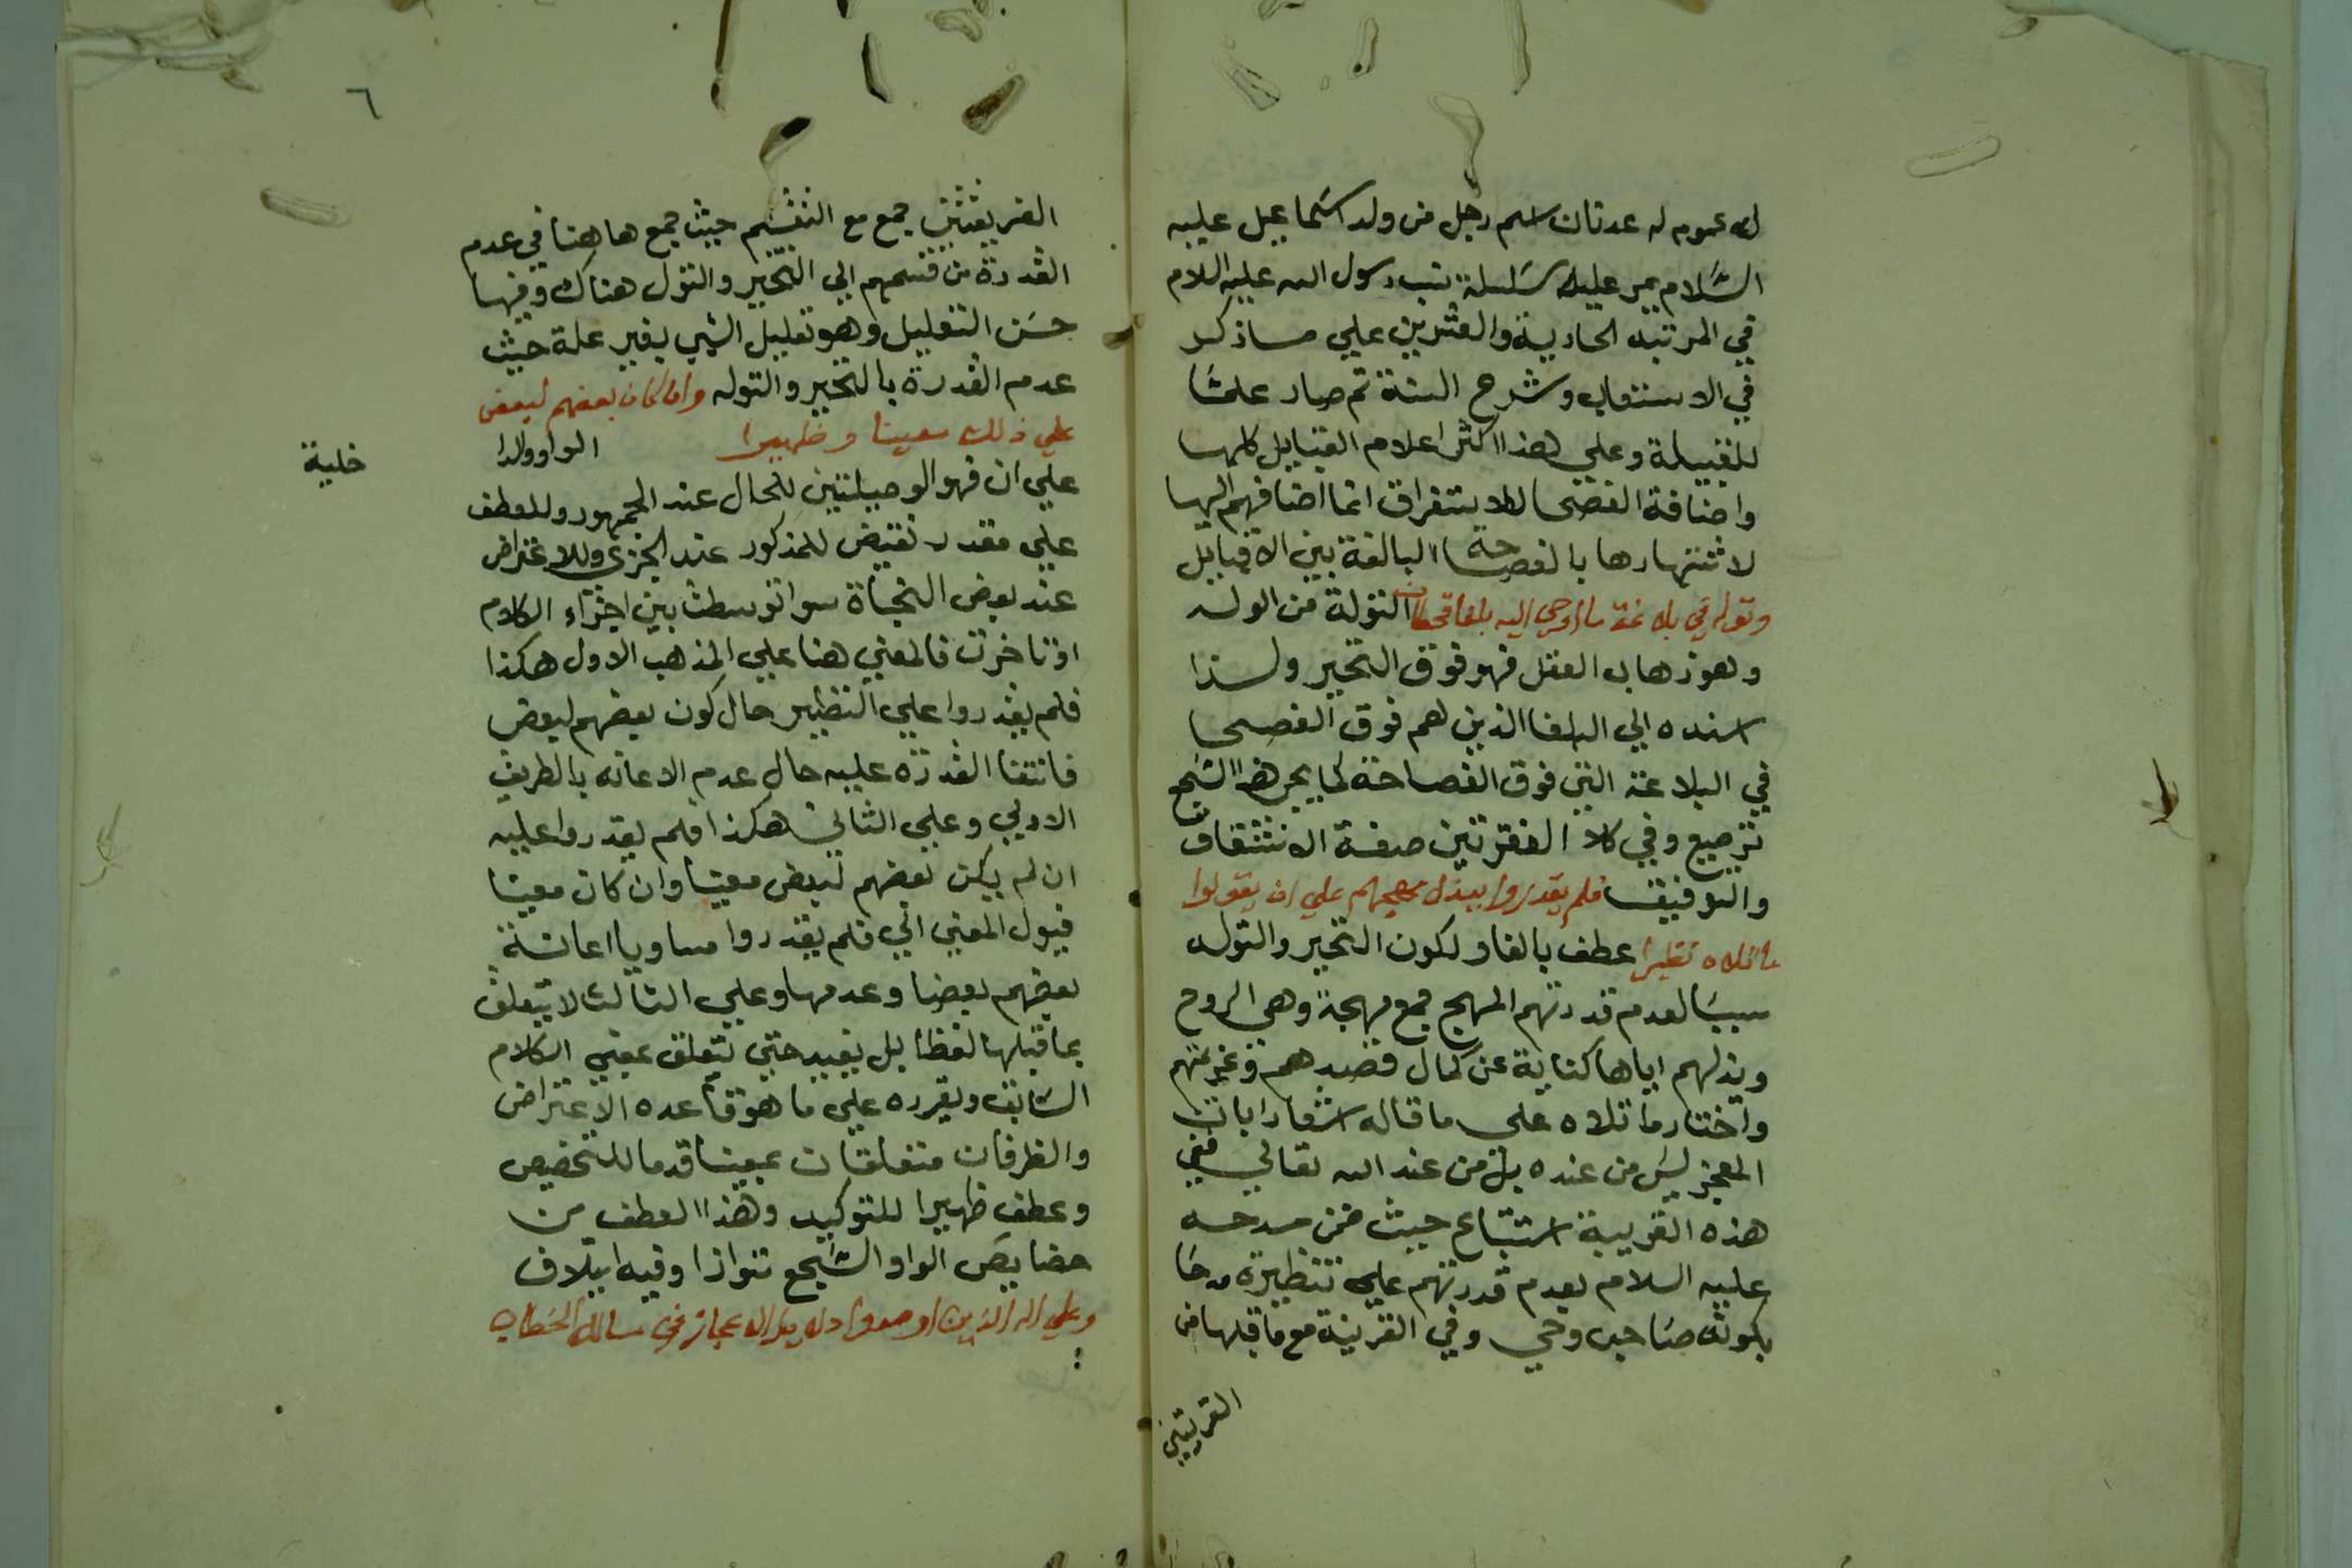 له عموم له عدنان اسم رجل من ولد اسماعيل عليه
السلام يمر عليه سلسلة نسب رسول الله عليه السلام
في المرتبة الحادية والعشرين علي ما ذكر
في الاستيعاب وشرح السنة ثم صار علما
للقبيلة وعلي هذا اكثر اعلام القبايل كلها
واضافة الفصحا للاستغراق انما اضافهم اليها
لاشتهارها بالفصاحة البالغة بين الاقبايل
وتوله في بلاغة ما اوحي اليه بلغا قحطان التولة من الوله
وهو ذهاب العقل فهو فوق التحير ولذا
اسنده الي البلغا الذين هم فوق الفصحا
في البلاغة التي فوق الفصاحة كما يجر هذا السجع
ترصيع وفي كلا الفقرتين صفة الاشتقاق
والتوفيق فلم يقدروا ببذل مهجهم علي ان يقولوا
ما تلاه نظيرا عطف بالفا ولكون التحير والتوله
سببا لعدم قدرتهم المهج جمع مهجة وهي الروح
وبذلهم اياها كناية عن كمال قصدهم وعزمتهم
واختار ما تلاه علي ما قاله اشعارا بان
المعجز ليس من عنده بل من عند الله تعالي ففي
هذه القرينة استتباع حيث ضمن مدحه
عليه السلام بعدم قدرتهم علي تنظيره مدحا
بكونه صاحب وحي وفي القرينة مع ما قبلها من
القرينتين
٦
القرينتين جمع مع التقسيم حيث جمع ها هنا في عدم
القدرة من قسمهم الي التحير والتوله هناك وفيها
حسن التعليل وهو تعليل الشي بغير علة حيث
عدم القدرة بالتحير والتوله وان كان بعضهم لبعض
علي ذلك معينا وظهيرا الواو والدا
خلية
علي ان فهو الوصيلتين للحال عند الجمهور وللعطف
علي مقدر نقيض للمذكور عند الجزي وللاعتراض
عند بعض النحاة سوا توسطت بين اجزاء الكلام
او تاخرت فالمعني هنا علي المذهب الاول هكذا
فلم يقدروا علي التنظير حال كون بعضهم لبعض
فانتفا القدرة عليه حال عدم الاعانه بالطريق
الاولي وعلي الثاني هكذا فلم يقدروا عليه
ان لم يكن بعضهم لبعض معينا وان كان معينا
فيول المعني الي فلم يقدروا مساويا اعانة
بعضهم بعضا وعدمها وعلي الثالث لا يتعلق
بما قبلها لفظا بل يفيد حتي يتعلق بمعني الكلام
السابق ويقرره علي ما هو قاعده الاعتراض
والظرفان متعلقان بمعينا قدما للتخصيص
وعطف ظهيرا للتوكيد وهذا العطف من
خصايص الواو والسجع تتوازا وفيه ايتلاف
وعلي اله الذين